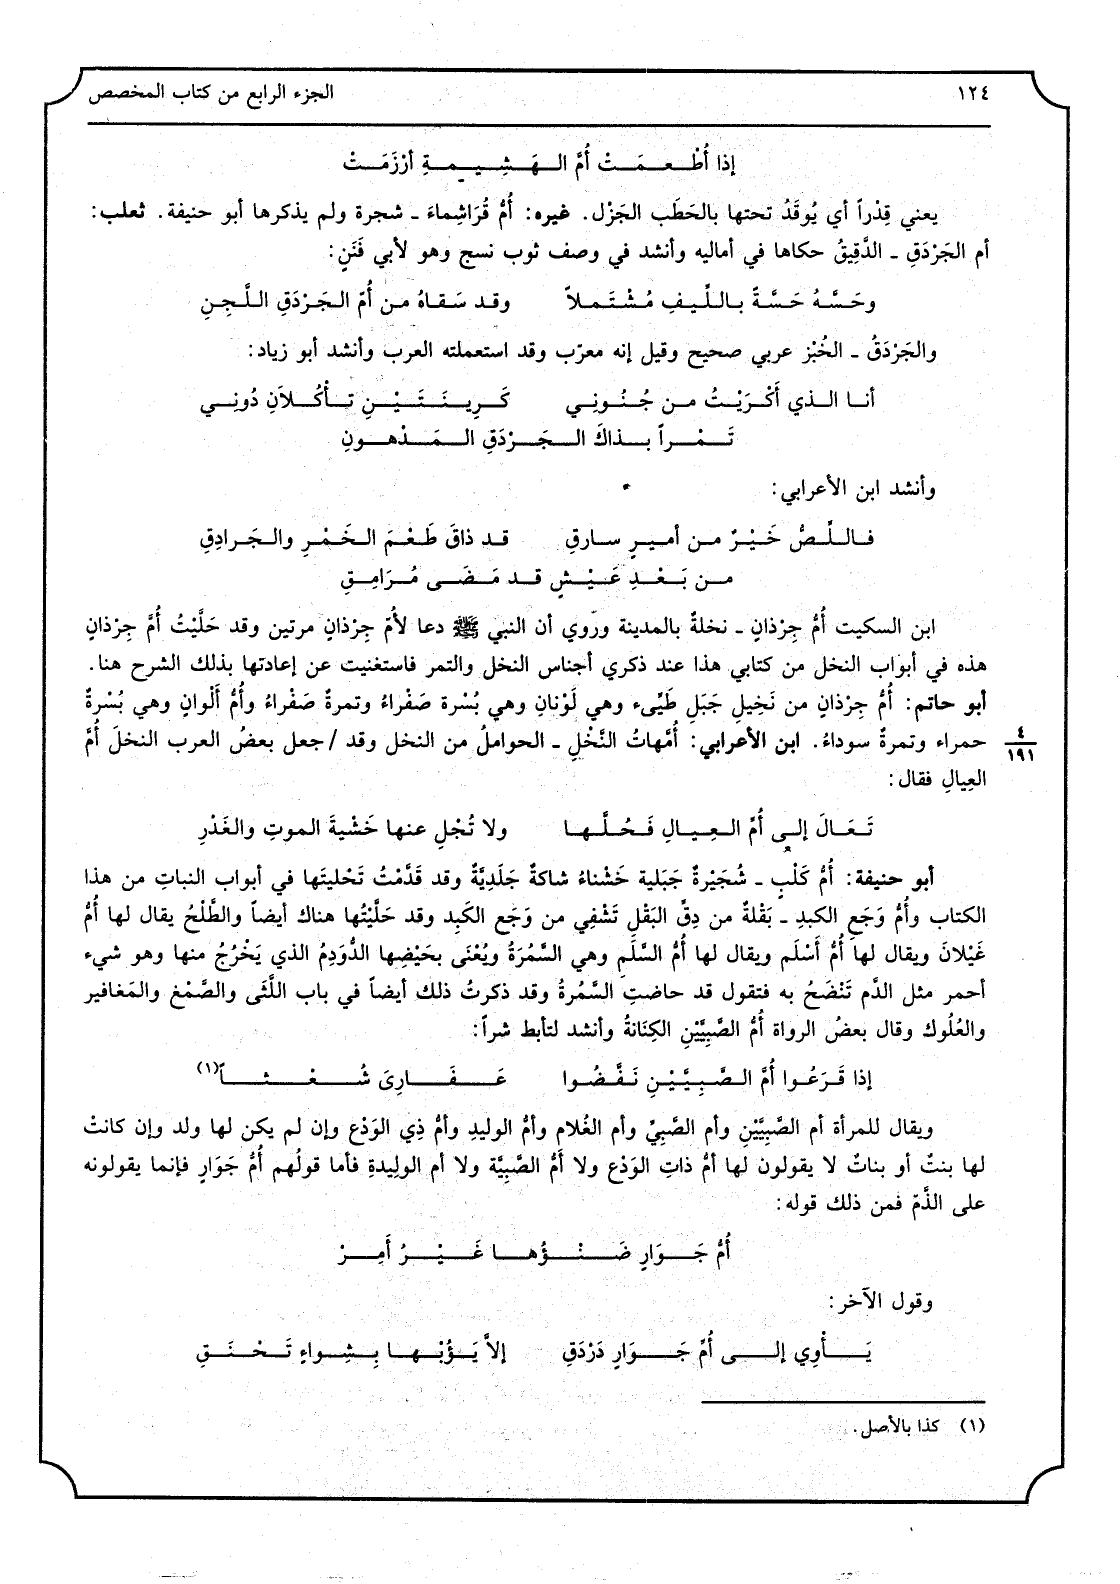 ١٢٤ الجزء الرابع من كتاب المخصص
إذا أُطْعمَتْ أُمَّ الهَشِيمةِ أرْزَمَتْ
يعني قِدْراً أي يُوقَدُ تحتها بالحَطَب الجَزْل. غيره: أُمُّ قُرَاشِماءَ ـ شجرة ولم يذكرها أبو حنيفة. ثعلب:
أم الجَرْدَقِ ـ الدَّقِيقُ حكاها في أماليه وأنشد في وصف ثوب نسج وهو لأبي فَنَنٍ:
وحَسَّهُ حَسَّةً باللِّيفِ مُشْتَملاً وقد سَقاهُ من أُمّ الجَرْدَقِ اللَّجِنِ
والجَرْدَقُ ـ الخُبْز عربي صحيح وقيل إنه معرّب وقد استعملته العرب وأنشد أبو زياد:
أنا الذي أَكْرَيْتُ من جُنُوني كَرِينَتَيْنِ تأْكُلاَنِ دُونِي
تَمْراً بذاكَ الجَرْدَقِ المَدْهونِ
وأنشد ابن الأعرابي:
فاللِّصُّ خَيْرٌ من أميرٍ سارقِ قد ذاقَ طَعْمَ الخَمْرِ والجَرادِقِ
من بَعْدِ عَيْشٍ قد مَضَى مُرَامِقِ
ابن السكيت أُمُّ جِرْذانٍ ـ نخلةٌ بالمدينة ورُوي أن النبي ﷺ دعا لأمّ جِرْذانٍ مرتين وقد حَلَّيْتُ أُمَّ جِرْذانٍ
هذه في أبواب النخل من كتابي هذا عند ذكري أجناس النخل والتمر فاستغنيت عن إعادتها بذلك الشرح هنا.
أبو حاتم: أُمُّ جِرْذانٍ من نَخِيلِ جَبَلِ طَيِّىء وهي لَوْنانِ وهي بُسْرة صَفْراءُ وتمرةٌ صَفْراءُ وأُمُّ أَلْوانٍ وهي بُسْرةٌ
حمراء وتمرةٌ سوداءُ. ابن الأعرابي: أُمَّهاتُ النَّخْلِ ـ الحواملُ من النخل وقد /جعل بعضُ العرب النخلَ أُمَّ
٤
١٩١
العِيالِ فقال:
تَعَالَ إلى أُمِّ العِيالِ فَحُلَّها ولا تُجْلِ عنها خَشْيةَ الموتِ والغَدْرِ
أبو حنيفة: أُمُّ كَلْبٍ ـ شُجَيْرةٌ جَبَلية خَشْناءُ شاكةٌ جَلَدِيَّةٌ وقد قَدَّمْتُ تَحْليتَها في أبواب النباتِ من هذا
الكتاب وأُمُّ وَجَعِ الكبدِ ـ بَقْلةٌ من دِقِّ البَقْلِ تَشْفِي من وَجَع الكَبِد وقد حَلَّيْتُها هناك أيضاً والطَّلْحُ يقال لها أُمُّ
غَيْلانَ ويقال لها أُمُّ أَسْلَم ويقال لها أُمُّ السَّلَمِ وهي السَّمُرَةُ ويُعْنَى بحَيْضِها الدُّوَدِمُ الذي يَخْرُجُ منها وهو شيء
أحمر مثل الدَّم تَنْضَحُ به فتقول قد حاضتِ السَّمُرةُ وقد ذكرتُ ذلك أيضاً في باب اللَّثَى والصَّمْغ والمَغافير
والعُلُوك وقال بعضُ الرواة أُمُّ الصَّبِيَّيْنِ الكِنَانةُ وأنشد لتأبط شراً:
إذا قَرَعُوا أُمَّ الصَّبِيَّيْنِ نَفَّضُوا عَفَارِىَ شُعْثاً(١)
ويقال للمرأة أم الصَّبِيَّيْنِ وأم الصَّبِيّ وأم الغُلام وأمُّ الوليدِ وأمُّ ذِي الوَدْع وإن لم يكن لها ولد وإن كانتْ
لها بنتٌ أو بناتٌ لا يقولون لها أمُّ ذاتِ الوَدْع ولا أمُّ الصَّبِيَّة ولا أم الولِيدةِ فأما قولُهم أُمُّ جَوَارٍ فإنما يقولونه
على الذَّمّ فمن ذلك قوله:
أُمُّ جَوَارٍ ضَنْؤُها غَيْرُ أَمِرْ
وقول الآخر:
يَأْوِي إلى أُمِّ جَوَارٍ دَرْدَقِ إلاَّ يَؤُبْها بِشِواءٍ تَحْنَقِ
(١) كذا بالأصل.